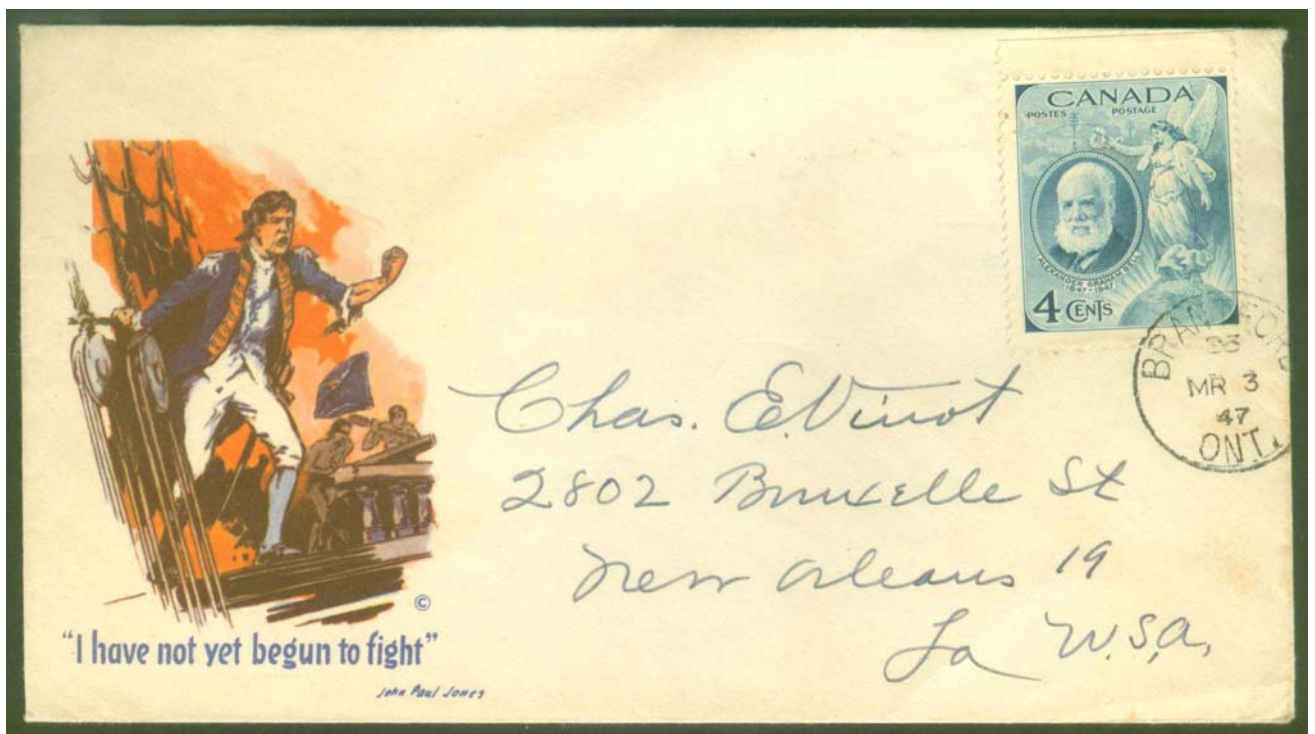 CANADA
POSTES POSTAGE
ALEXANDER GRAHAM BELL
1847-1947
4 CENTS
BRANTFORD
23
MR 3
47
ONT.
Chas. E. Vinot
2802 Bruxelle St
New Orleans 19
La U.S.A.
©
"I have not yet begun to fight"
John Paul Jones